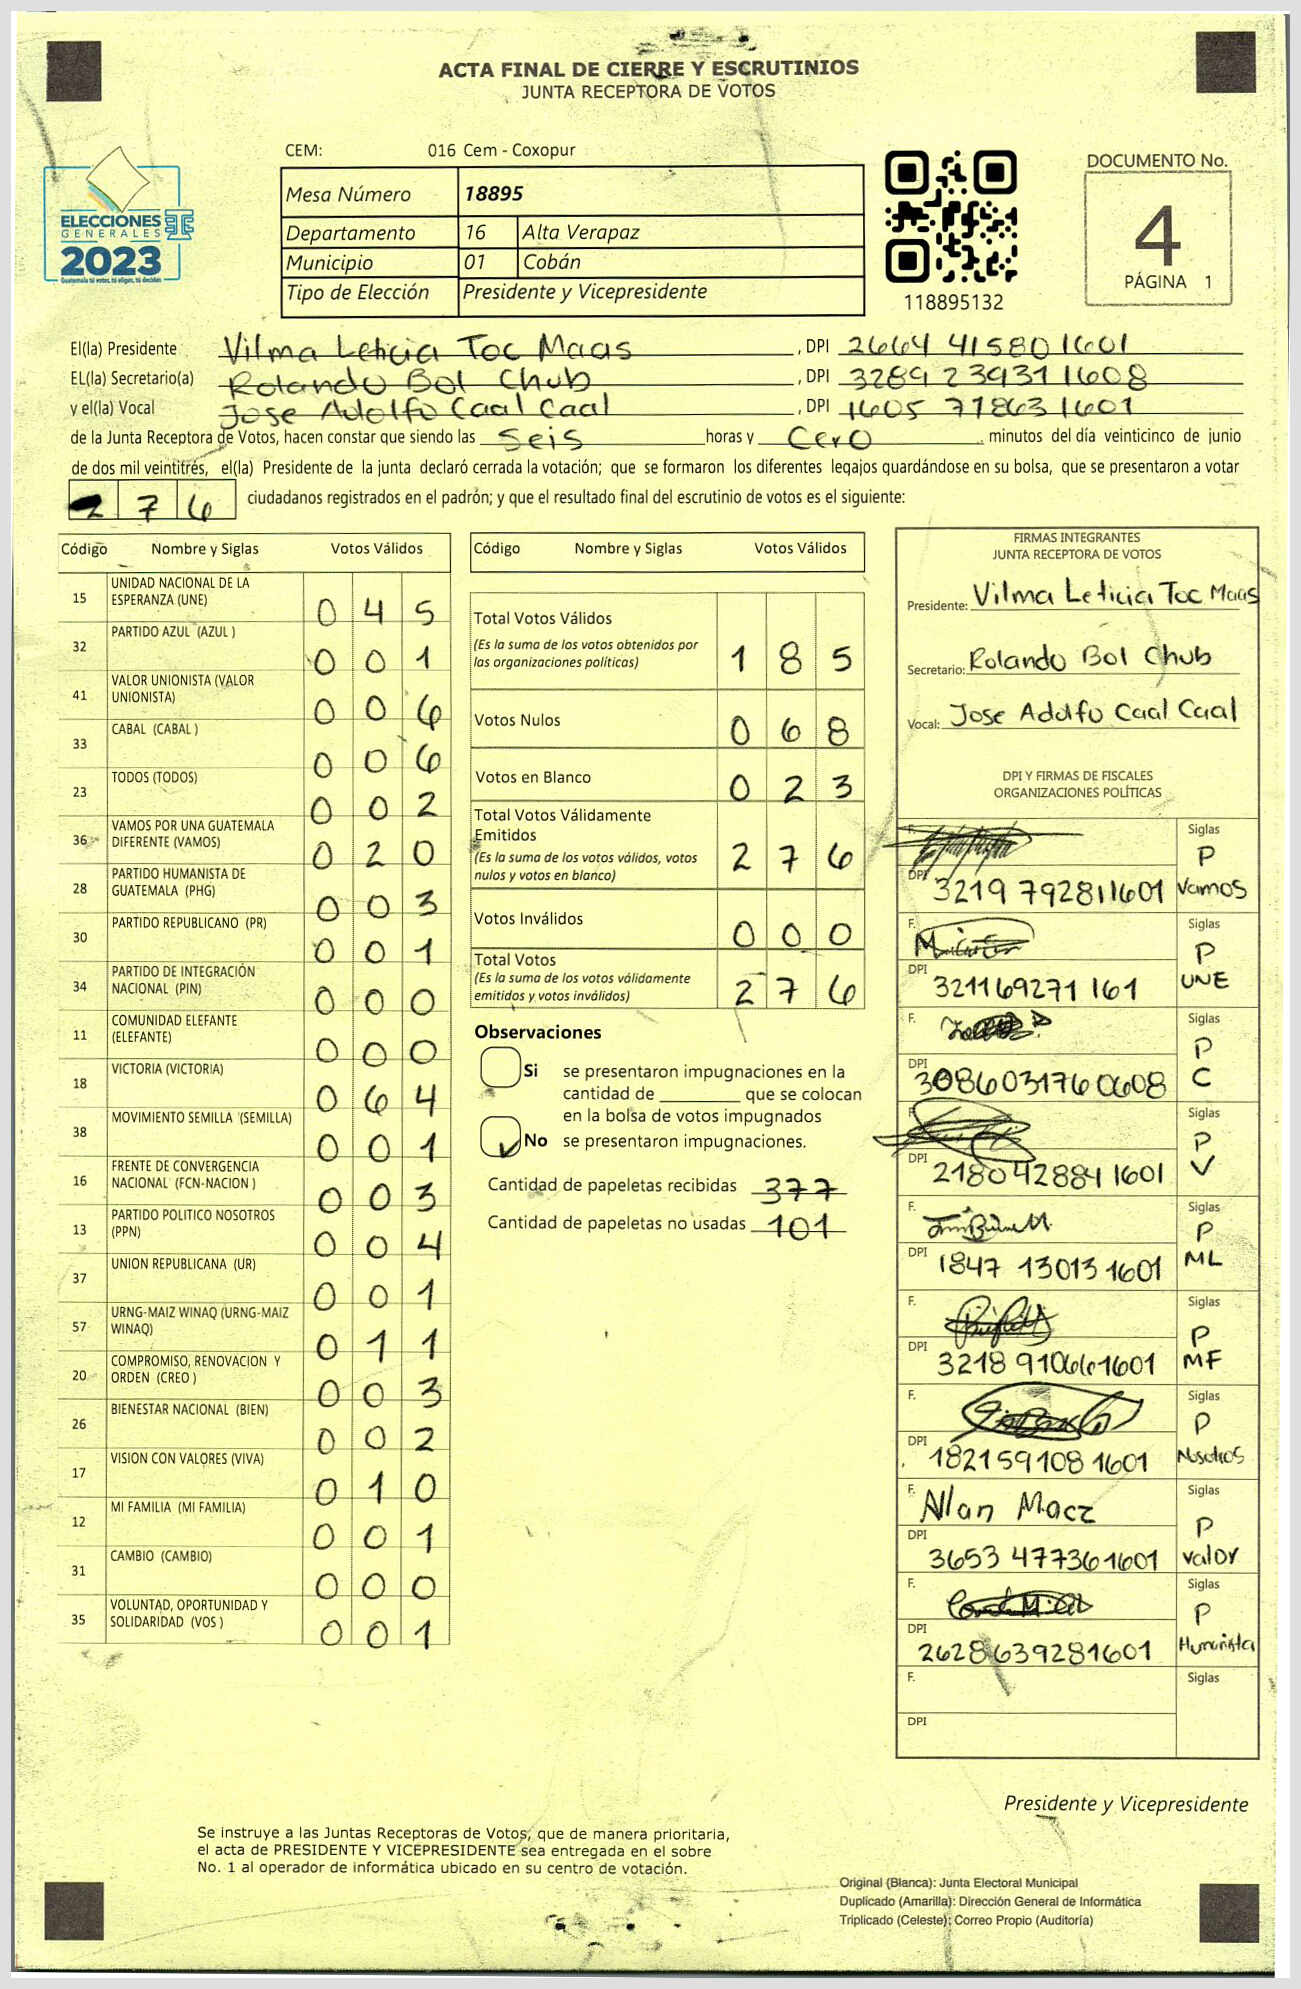 ACTA FINAL DE CIERRE Y ESCRUTINIOS
JUNTA RECEPTORA DE VOTOS
CEM: 016 Cem - Coxopur
ELECCIONES
GENERALES
2023
Guatemala tú votas, tú eliges, tú decides
Mesa Número 18895
Departamento 16 Alta Verapaz
Municipio 01 Cobán
Tipo de Elección Presidente y Vicepresidente
118895132
DOCUMENTO No.
4
PÁGINA 1
El(la) Presidente Vilma Leticia Toc Maas , DPI 2664 41580 1601
EL(la) Secretario(a) Rolando Bol Chub , DPI 3289 23931 1608
y el(la) Vocal Jose Adolfo Caal Caal , DPI 1605 71863 1601
de la Junta Receptora de Votos, hacen constar que siendo las Seis horas y Cero minutos del día veinticinco de junio
de dos mil veintitrés, el(la) Presidente de la junta declaró cerrada la votación; que se formaron los diferentes legajos guardándose en su bolsa, que se presentaron a votar
2 7 6 ciudadanos registrados en el padrón; y que el resultado final del escrutinio de votos es el siguiente:
Código Nombre y Siglas Votos Válidos
15 UNIDAD NACIONAL DE LA ESPERANZA (UNE) 0 4 5
32 PARTIDO AZUL (AZUL ) 0 0 1
41 VALOR UNIONISTA (VALOR UNIONISTA) 0 0 6
33 CABAL (CABAL ) 0 0 6
23 TODOS (TODOS) 0 0 2
36 VAMOS POR UNA GUATEMALA DIFERENTE (VAMOS) 0 2 0
28 PARTIDO HUMANISTA DE GUATEMALA (PHG) 0 0 3
30 PARTIDO REPUBLICANO (PR) 0 0 1
34 PARTIDO DE INTEGRACIÓN NACIONAL (PIN) 0 0 0
11 COMUNIDAD ELEFANTE (ELEFANTE) 0 0 0
18 VICTORIA (VICTORIA) 0 6 4
38 MOVIMIENTO SEMILLA (SEMILLA) 0 0 1
16 FRENTE DE CONVERGENCIA NACIONAL (FCN-NACION ) 0 0 3
13 PARTIDO POLITICO NOSOTROS (PPN) 0 0 4
37 UNION REPUBLICANA (UR) 0 0 1
57 URNG-MAIZ WINAQ (URNG-MAIZ WINAQ) 0 1 1
20 COMPROMISO, RENOVACION Y ORDEN (CREO ) 0 0 3
26 BIENESTAR NACIONAL (BIEN) 0 0 2
17 VISION CON VALORES (VIVA) 0 1 0
12 MI FAMILIA (MI FAMILIA) 0 0 1
31 CAMBIO (CAMBIO) 0 0 0
35 VOLUNTAD, OPORTUNIDAD Y SOLIDARIDAD (VOS ) 0 0 1
Código Nombre y Siglas Votos Válidos
Total Votos Válidos 1 8 5
(Es la suma de los votos obtenidos por
las organizaciones políticas)
Votos Nulos 0 6 8
Votos en Blanco 0 2 3
Total Votos Válidamente
Emitidos 2 7 6
(Es la suma de los votos válidos, votos
nulos y votos en blanco)
Votos Inválidos 0 0 0
Total Votos 2 7 6
(Es la suma de los votos válidamente
emitidos y votos inválidos)
Observaciones
Si se presentaron impugnaciones en la
cantidad de ________ que se colocan
en la bolsa de votos impugnados
No se presentaron impugnaciones.
Cantidad de papeletas recibidas 377
Cantidad de papeletas no usadas 101
FIRMAS INTEGRANTES
JUNTA RECEPTORA DE VOTOS
Presidente: Vilma Leticia Toc Maas
Secretario: Rolando Bol Chub
Vocal: Jose Adolfo Caal Caal
DPI Y FIRMAS DE FISCALES
ORGANIZACIONES POLÍTICAS
F. Siglas P Vamos
DPI 3219 79281 1601
F. Siglas P UNE
DPI 321169271 161
F. Siglas P C
DPI 3086031760608
F. Siglas P V
DPI 2180428841601
F. Siglas P ML
DPI 1847 13013 1601
F. Siglas P MF
DPI 3218 910661601
F. Siglas P Nosotros
DPI 1821591081601
F. Alan Macz Siglas P valor
DPI 3653 477361601
F. Siglas P Humanista
DPI 2628639281601
F. Siglas
DPI
Presidente y Vicepresidente
Se instruye a las Juntas Receptoras de Votos, que de manera prioritaria,
el acta de PRESIDENTE Y VICEPRESIDENTE sea entregada en el sobre
No. 1 al operador de informática ubicado en su centro de votación.
Original (Blanca): Junta Electoral Municipal
Duplicado (Amarilla): Dirección General de Informática
Triplicado (Celeste): Correo Propio (Auditoría)